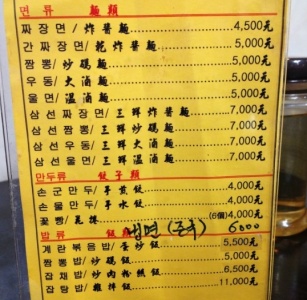 면 류 麵 類
짜 장 면 / 炸 醬 麵 4,500元
간 짜 장 면 / 乾 炸 醬 麵 5,000元
짬 뽕 / 炒 碼 麵 5,000元
우 동 / 大 滷 麵 5,000元
울 면 / 溫 滷 麵 5,000元
삼 선 짜 장 면 / 三 鮮 炸 醬 麵 7,000元
삼 선 짬 뽕 / 三 鮮 炒 碼 麵 7,000元
삼 선 우 동 / 三 鮮 大 滷 麵 7,000元
삼 선 울 면 / 三 鮮 溫 滷 麵 7,000元
만두류 餃 子 類
손 군 만 두 / 手 煎 餃 4,000元
손 물 만 두 / 手 水 餃 4,000元
꽃 빵 / 花 捲 (6개) 4,000元
밥 류 飯 냉면 6000
계 란 볶 음 밥 / 蛋 炒 飯 5,500元
짬 뽕 밥 / 炒 碼 飯 5,500元
잡 채 밥 / 炒 肉 粉 絲 飯 6,500元
잡 탕 밥 / 雜 拌 飯 11,000元